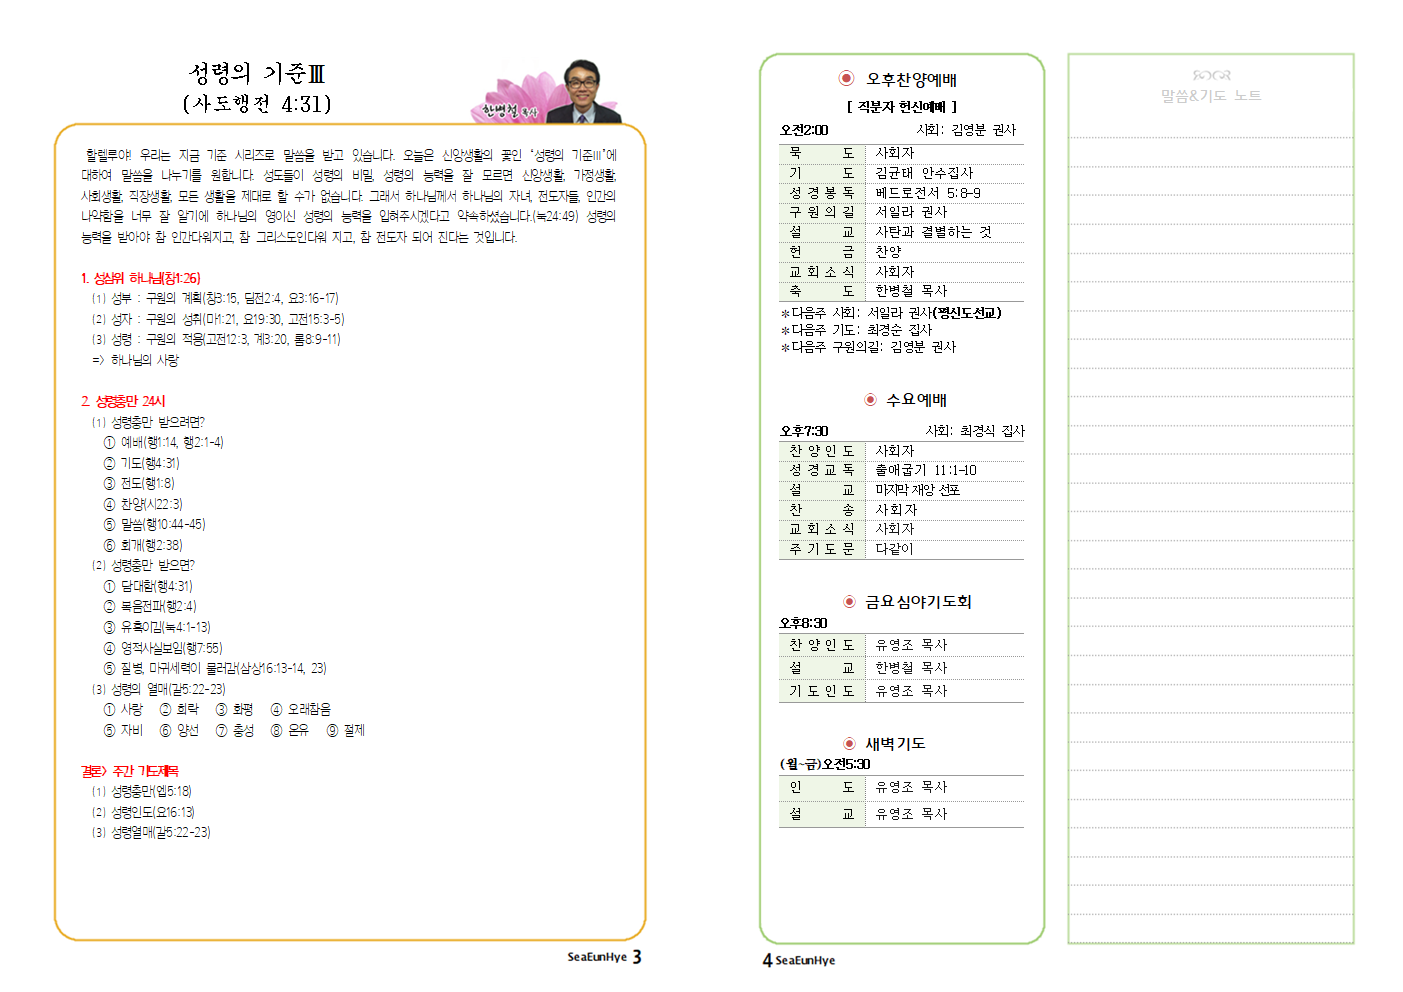 성령의 기준Ⅲ
(사도행전 4:31)
한병철 목사
할렐루야! 우리는 지금 기준 시리즈로 말씀을 받고 있습니다. 오늘은 신앙생활의 꽃인 "성령의 기준Ⅲ"에
대하여 말씀을 나누기를 원합니다. 성도들이 성령의 비밀, 성령의 능력을 잘 모르면 신앙생활, 가정생활,
사회생활, 직장생활, 모든 생활을 제대로 할 수가 없습니다. 그래서 하나님께서 하나님의 자녀, 전도자들, 인간의
나약함을 너무 잘 알기에 하나님의 영이신 성령의 능력을 입혀주시겠다고 약속하셨습니다.(눅24:49) 성령의
능력을 받아야 참 인간다워지고, 참 그리스도인다워 지고, 참 전도자 되어 진다는 것입니다.
1. 성삼위 하나님(창1:26)
(1) 성부 : 구원의 계획(창3:15, 딤전2:4, 요3:16-17)
(2) 성자 : 구원의 성취(마1:21, 요19:30, 고전15:3-5)
(3) 성령 : 구원의 적용(고전12:3, 계3:20, 롬8:9-11)
=> 하나님의 사랑
2. 성령충만 24시
(1) 성령충만 받으려면?
① 예배(행1:14, 행2:1-4)
② 기도(행4:31)
③ 전도(행1:8)
④ 찬양(시22:3)
⑤ 말씀(행10:44-45)
⑥ 회개(행2:38)
(2) 성령충만 받으면?
① 담대함(행4:31)
② 복음전파(행2:4)
③ 유혹이김(눅4:1-13)
④ 영적사실보임(행7:55)
⑤ 질병, 마귀세력이 물러감(삼상16:13-14, 23)
(3) 성령의 열매(갈5:22-23)
① 사랑 ② 희락 ③ 화평 ④ 오래참음
⑤ 자비 ⑥ 양선 ⑦ 충성 ⑧ 온유 ⑨ 절제
결론> 주간 기도제목
(1) 성령충만(엡5:18)
(2) 성령인도(요16:13)
(3) 성령열매(갈5:22-23)
SeaEunHye 3
오후찬양예배
[ 직분자 헌신예배 ]
오전2:00 사회: 김영분 권사
묵 도 사회자
기 도 김균태 안수집사
성경봉독 베드로전서 5:8-9
구원의길 서일라 권사
설 교 사탄과 결별하는 것
헌 금 찬양
교회소식 사회자
축 도 한병철 목사
*다음주 사회: 서일라 권사(평신도선교)
*다음주 기도: 최경순 집사
*다음주 구원의길: 김영분 권사
수요예배
오후7:30 사회: 최경식 집사
찬양인도 사회자
성경교독 출애굽기 11:1-10
설 교 마지막 재앙 선포
찬 송 사회자
교회소식 사회자
주기도문 다같이
금요심야기도회
오후8:30
찬양인도 유영조 목사
설 교 한병철 목사
기도인도 유영조 목사
새벽기도
(월~금)오전5:30
인 도 유영조 목사
설 교 유영조 목사
4 SeaEunHye
말씀&기도 노트